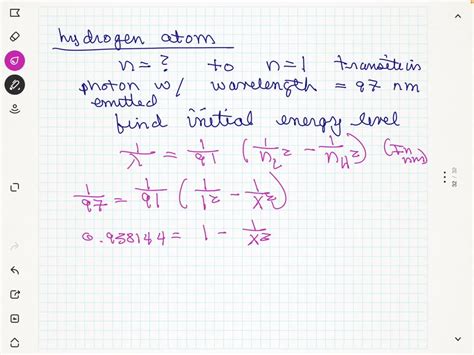 hydrogen atom
n=? to n=1 transition
photon w/ wavelength = 97 nm
emitted
find initial energy level
1/λ = 1/91 (1/n_L² - 1/n_H²) (In nms)
1/97 = 1/91 (1/1² - 1/x²)
0.938144 = 1 - 1/x²
32 / 32